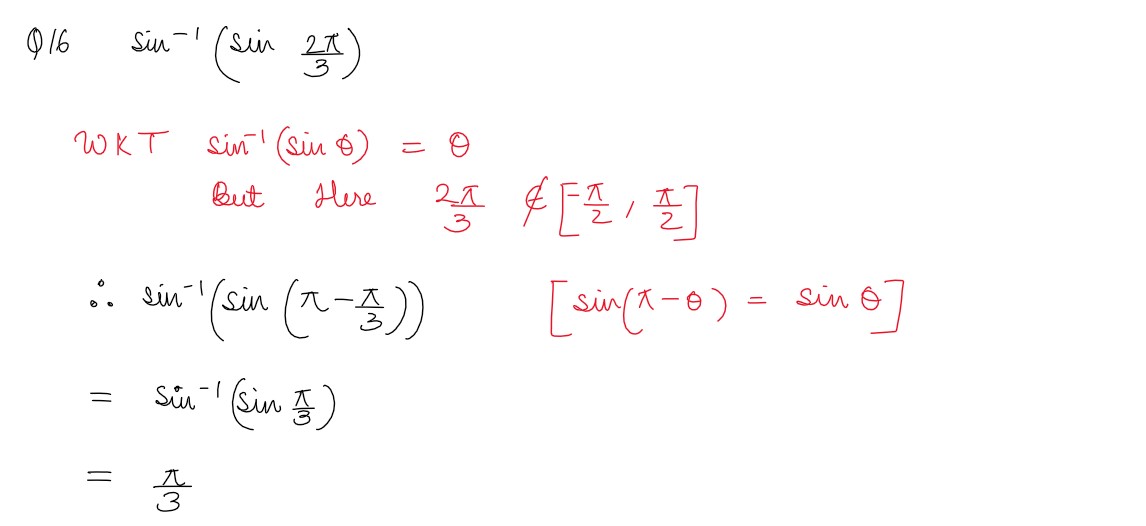 Q16 sin⁻¹(sin 2π/3)
WKT sin⁻¹(sin θ) = θ
But Here 2π/3 ∉ [-π/2, π/2]
∴ sin⁻¹(sin(π-π/3)) [sin(π-θ) = sin θ]
= sin⁻¹(sin π/3)
= π/3